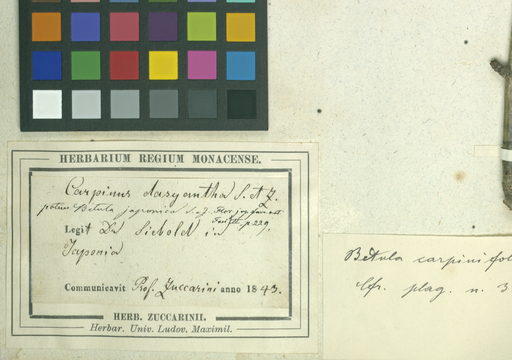 HERBARIUM REGIUM MONACENSE.
Carpinus dasyantha S. et Z.
potius Betula japonica S. Z. Flor. jap.
p. 229.
Legit Dr Siebold in
Japonia
Communicavit Prof. Zuccarini anno 1843.
HERB. ZUCCARINII.
Herbar. Univ. Ludov. Maximil.
Betula carpinifol
Cfr. plag. n. 3